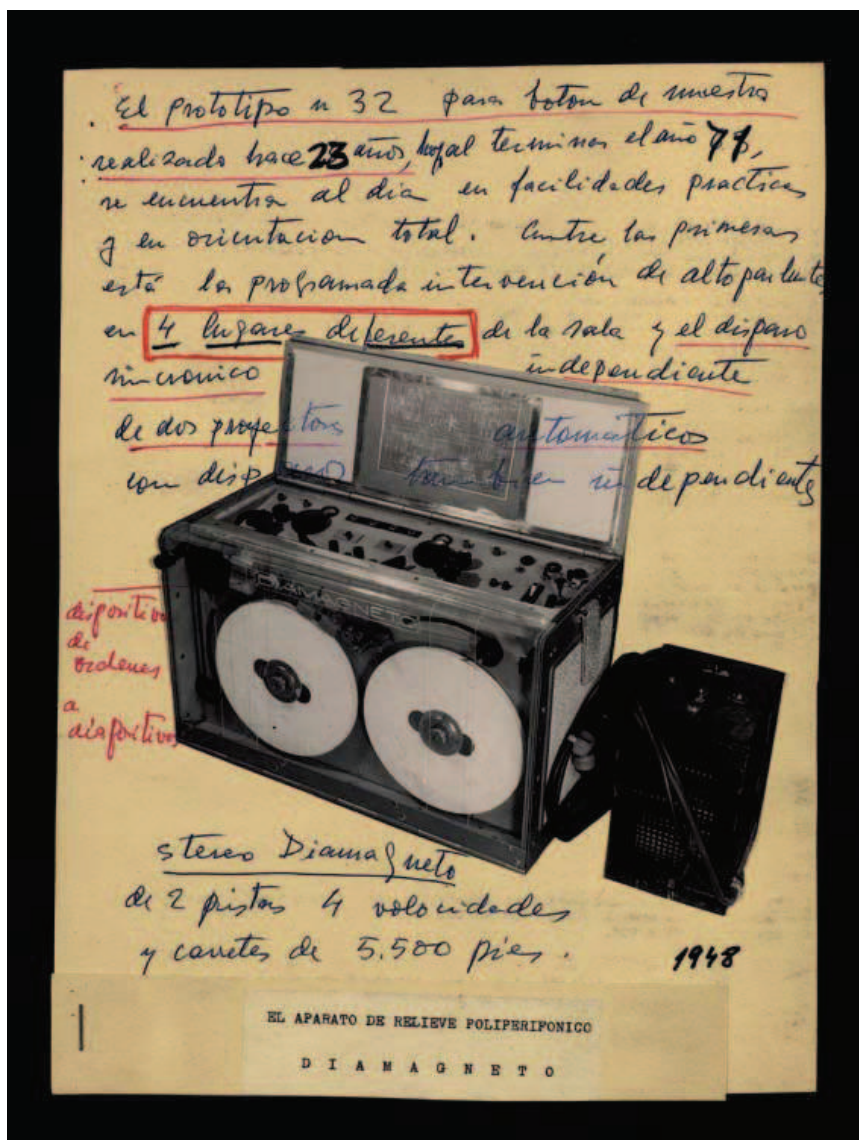 El prototipo n 32 para boton de muestra
realizado hace 23 años, hoy al terminar el año 71,
se encuentra al dia en facilidades practicas
y en orientacion total. Entre las primeras
está la programada intervención de altoparlantes
en 4 lugares deferentes de la sala y el disparo
sincronico independiente
de dos proyectores automáticos
con disparo tambien independiente
DIAMAGNETO
dispositivo
de
ordenes
a
diapositivas
stereo Diamagneto
de 2 pistas 4 velocidades
y carretes de 5.500 pies.
1948
EL APARATO DE RELIEVE POLIPERIFONICO
D I A M A G N E T O